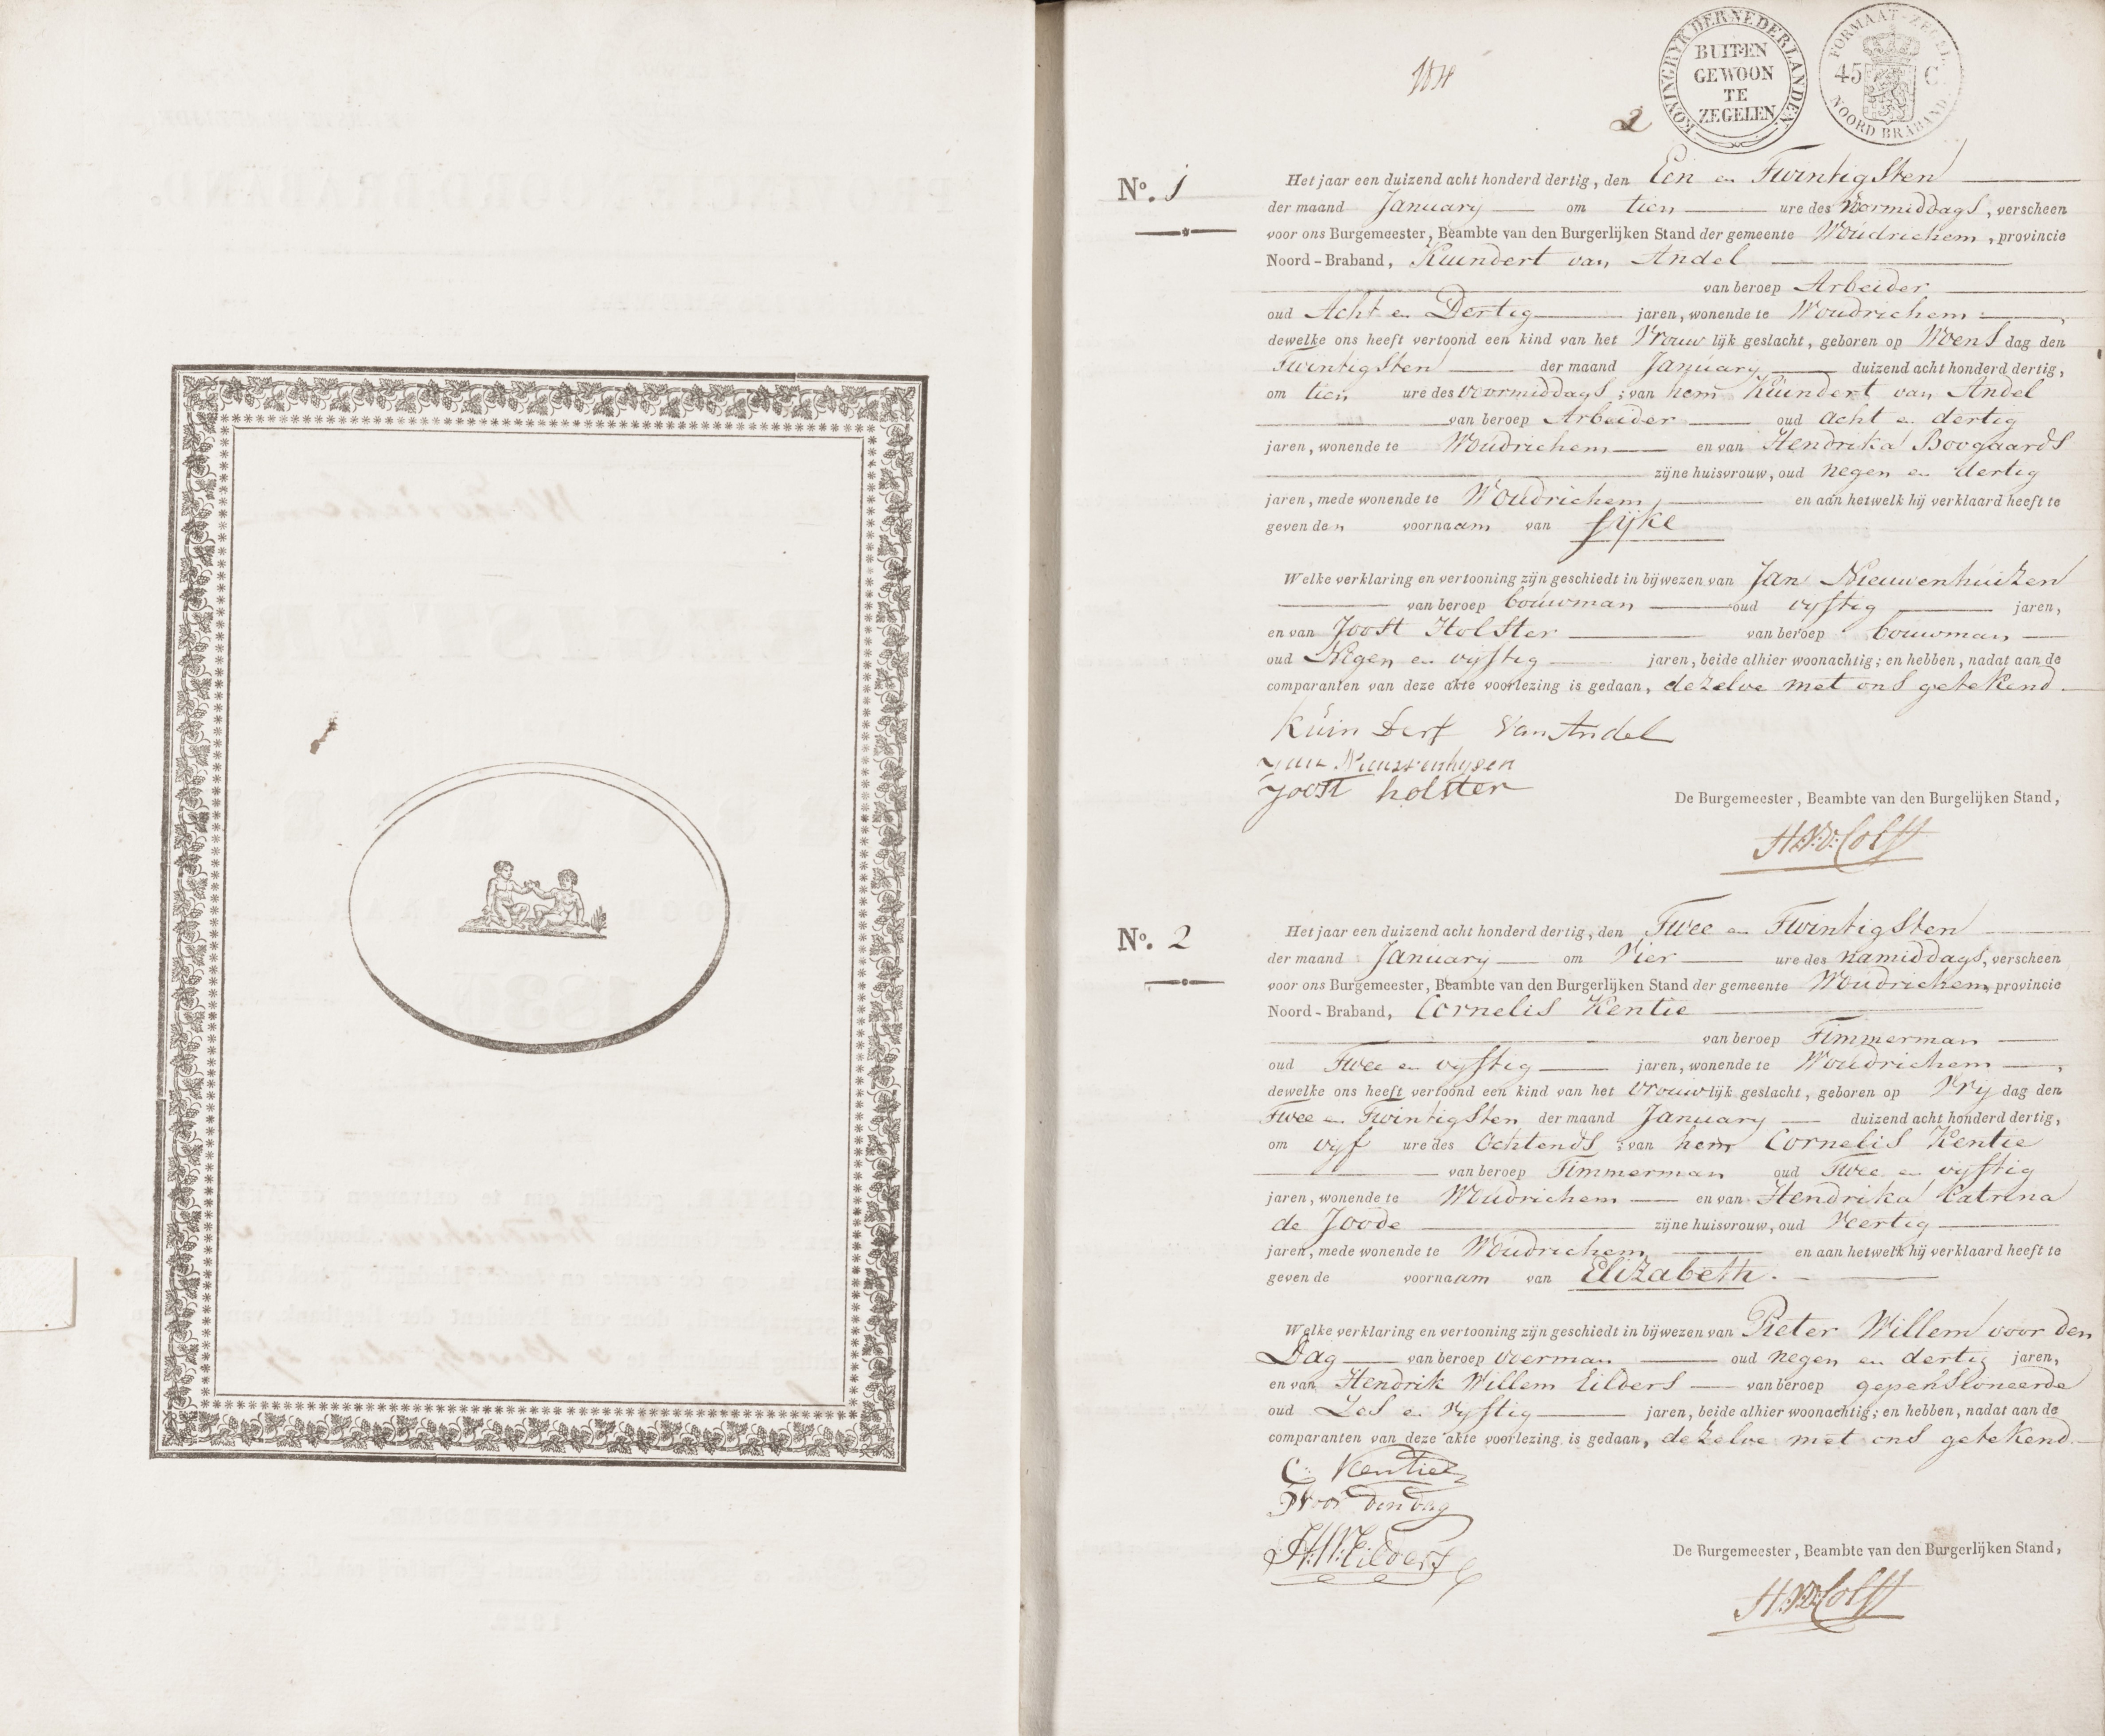 KONINGRYK DER NEDERLANDEN
BUITEN
GEWOON
TE
ZEGELEN
FORMAAT-ZEGEL
45 C
NOORD BRABAND
2
No. 1
Het jaar een duizend acht honderd dertig, den Een en Twintigsten
der maand January om tien ure des voormiddags, verscheen
voor ons Burgemeester, Beambte van den Burgerlijken Stand der gemeente Woudrichem, provincie
Noord-Braband, Kuindert van Andel
van beroep Arbeider
oud Acht en Dertig jaren, wonende te Woudrichem,
dewelke ons heeft vertoond een kind van het Vrouwlijk geslacht, geboren op Woensdag den
Twintigsten der maand January duizend acht honderd dertig,
om tien ure des voormiddags; van hem Kuindert van Andel
van beroep Arbeider oud acht en dertig
jaren, wonende te Woudrichem en van Hendrika Boogaards
zijne huisvrouw, oud negen en dertig
jaren, mede wonende te Woudrichem, en aan hetwelk hij verklaard heeft te
geven den voornaam van Sijke
Welke verklaring en vertooning zijn geschiedt in bijwezen van Jan Nieuwenhuizen
van beroep bouwman oud vyftig jaren,
en van Joost Holster van beroep bouwman
oud Negen en vyftig jaren, beide alhier woonachtig; en hebben, nadat aan de
comparanten van deze akte voorlezing is gedaan, dezelve met ons getekend.
Kuin Dert van Andel
Jan Nieuwenhysen
Joost holster
De Burgemeester, Beambte van den Burgelijken Stand,
No. 2
Het jaar een duizend acht honderd dertig, den Twee en Twintigsten
der maand January om Vier ure des namiddags, verscheen
voor ons Burgemeester, Beambte van den Burgerlijken Stand der gemeente Woudrichem, provincie
Noord-Braband, Cornelis Kentie
van beroep Timmerman
oud Twee en vyftig jaren, wonende te Woudrichem,
dewelke ons heeft vertoond een kind van het vrouwlijk geslacht, geboren op Vrijdag den
Twee en Twintigsten der maand January duizend acht honderd dertig,
om vyf ure des Ochtends; van hem Cornelis Kentie
van beroep Timmerman oud Twee en vyftig
jaren, wonende te Woudrichem en van Hendrika Catrina
de Joode zijne huisvrouw, oud Veertig
jaren, mede wonende te Woudrichem, en aan hetwelk hij verklaard heeft te
geven de voornaam van Elizabeth.
Welke verklaring en vertooning zijn geschiedt in bijwezen van Pieter Willem voor den
Dag van beroep voerman oud negen en dertig jaren,
en van Hendrik Willem Eilbers van beroep gepensioneerde
oud Zes en Vyftig jaren, beide alhier woonachtig; en hebben, nadat aan de
comparanten van deze akte voorlezing is gedaan, dezelve met ons getekend.
C: Kentie
PWoor den dag
H:W:Eilbers
De Burgemeester, Beambte van den Burgerlijken Stand,